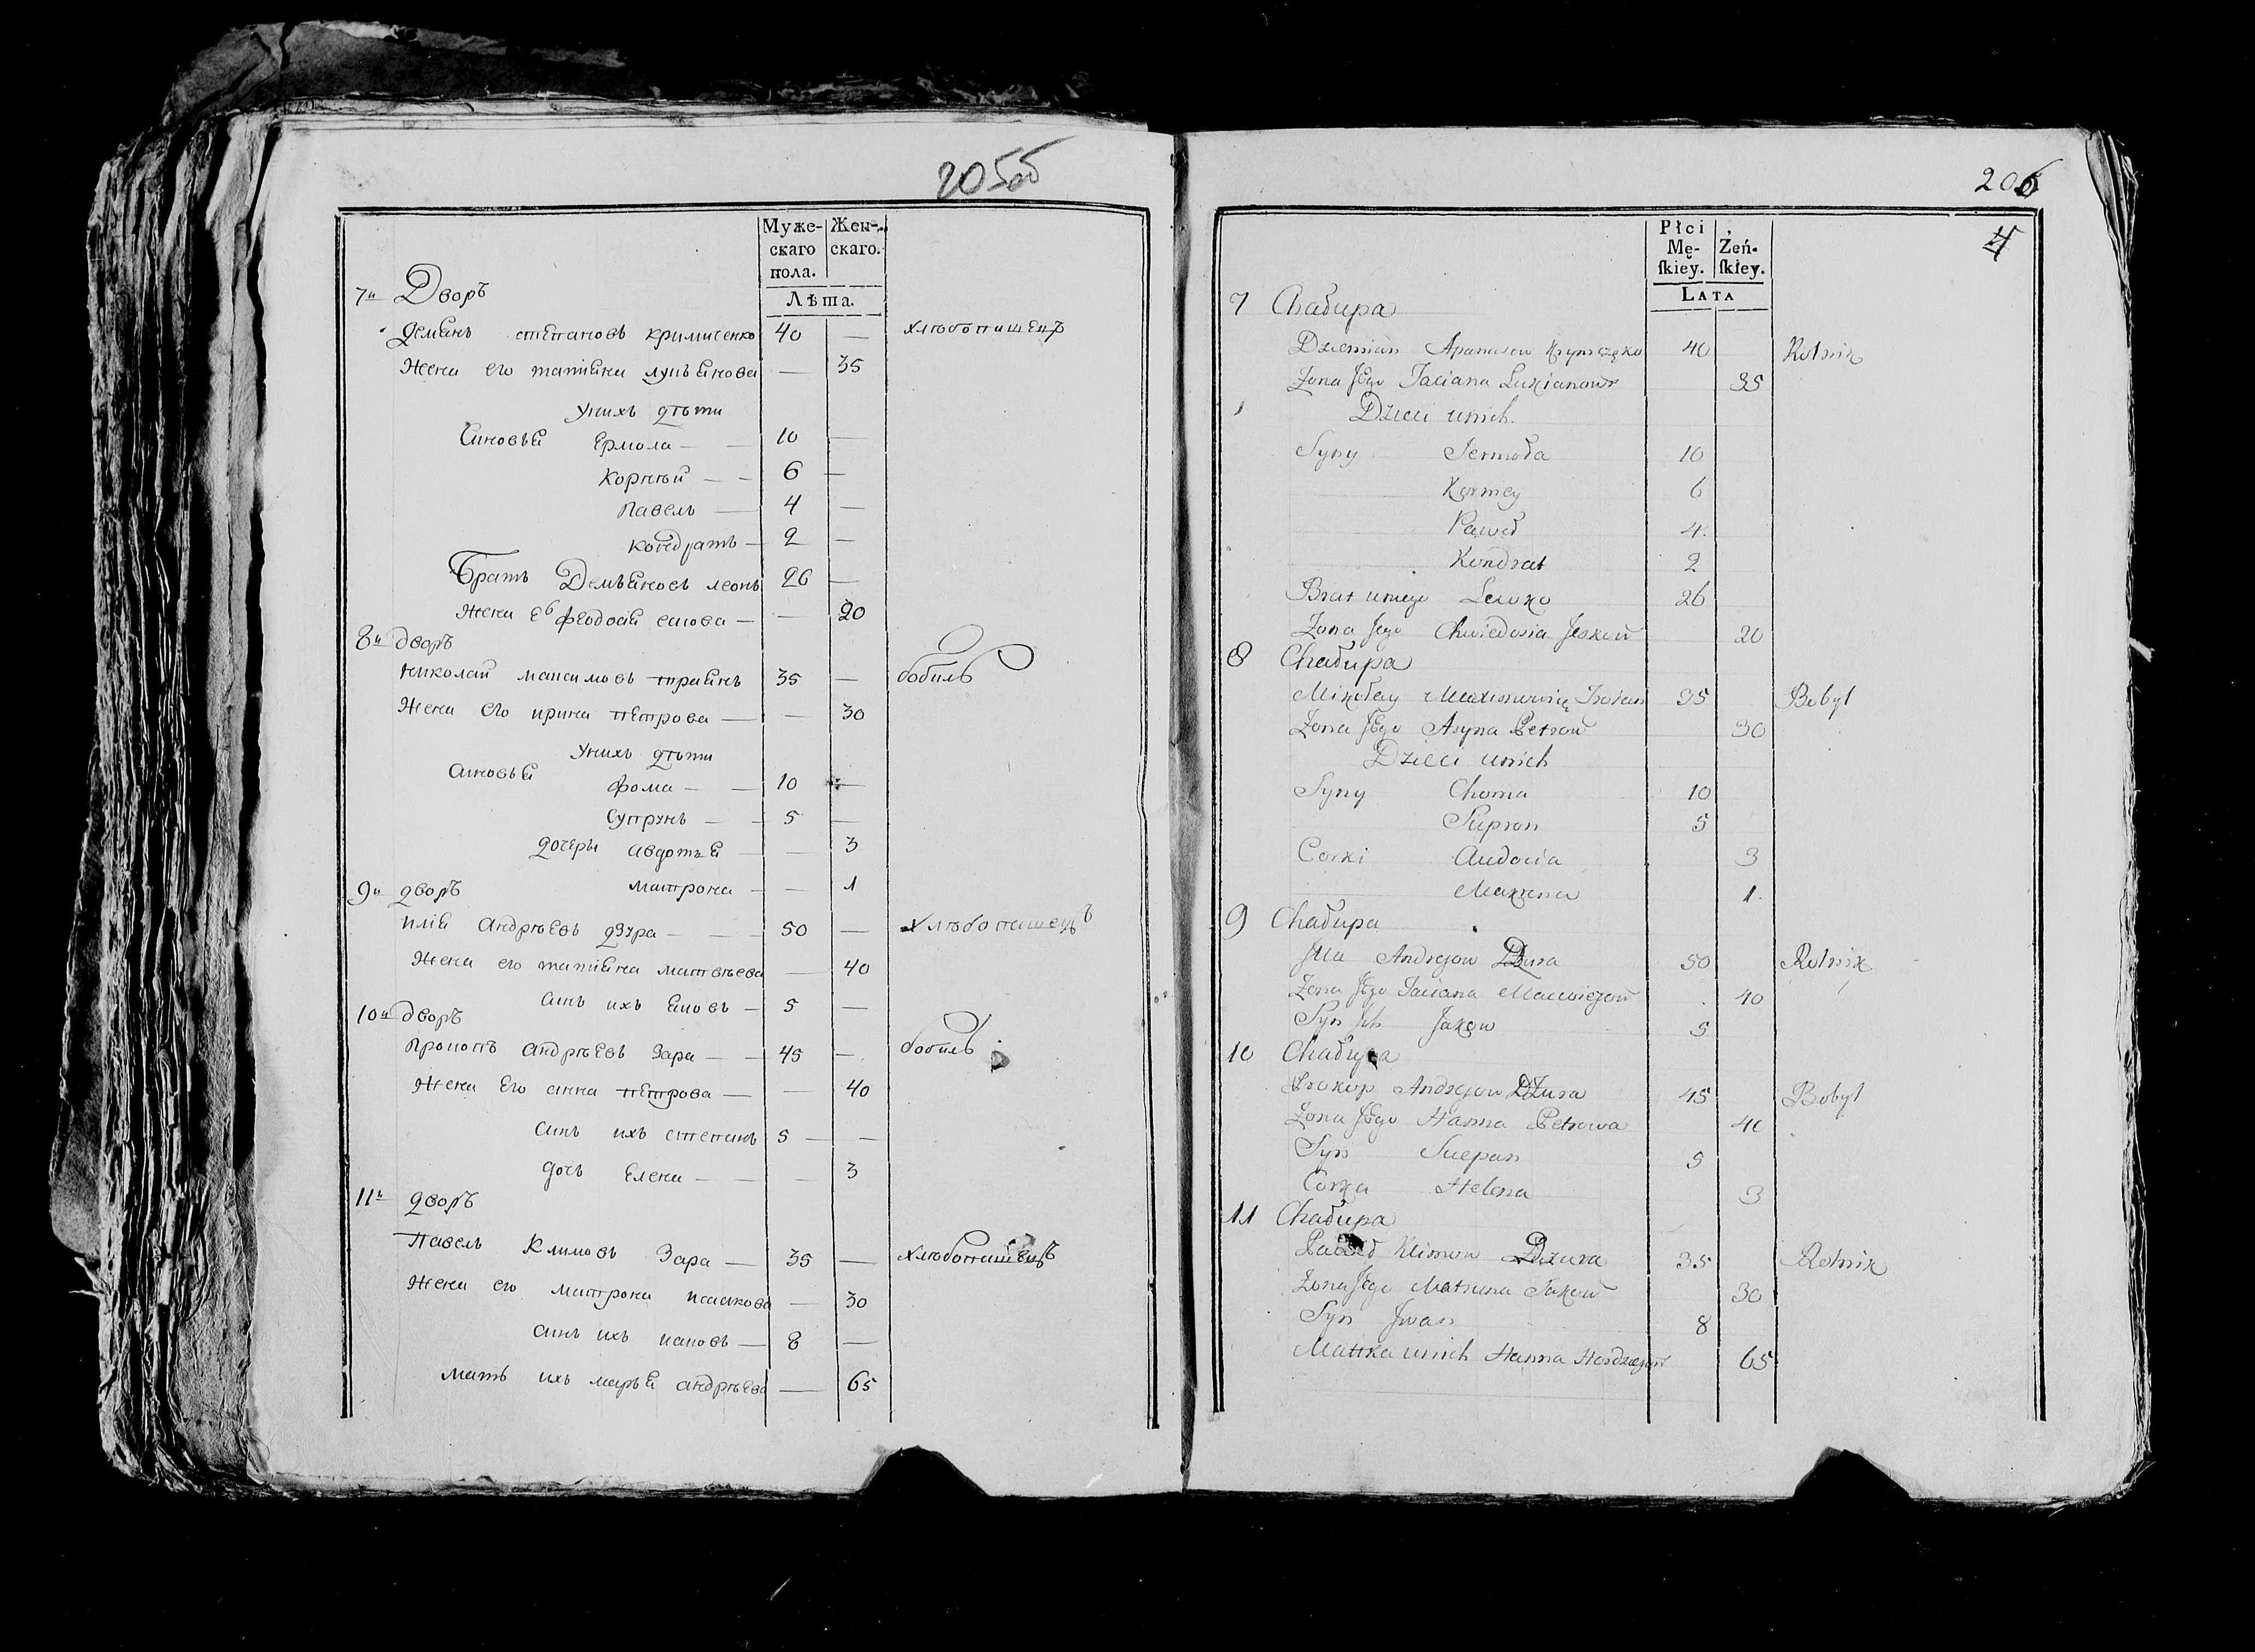 205об
Муже-
скаго
пола.
Жен-
скаго.
Лѣта.
7й Дворъ
Демьянъ степановъ кримиченко 40 — хлѣбопашецъ
Жена его татіяна лукъянова — 35
Унихъ дѣти
Синовья Ермола — 10 —
Корнѣй — 6 —
Павелъ — 4 —
Кондратъ — 2 —
Братъ Демъяновъ леонъ 26 —
Жена его феодосія — 20
8й дворъ
Николай максимовъ 35 — бобиль
Жена его ирина петрова — 30
Унихъ дѣти
Синовья фома — 10 —
Супрунъ — 5 —
дочери авдотья — 3
9й дворъ матрона — 1
илія андрѣевъ дзура — 50 — хлѣбопашецъ
Жена его татіяна матвѣева — 40
синъ ихъ яковъ — 5 —
10й дворъ
прокопъ андрѣевъ Зара — 45 — бобиль
Жена Его анна петрова — 40
синъ ихъ степанъ 5 —
дочь Елена — 3
11й дворъ
Павелъ Климовъ Зара — 35 — хлѣбопашецъ
Жена его матрона — 30
синъ ихъ — 8 —
мать ихъ марья андрѣева — 65
206
4
Płci
Mę-
ſkiey.
Żeń-
ſkiey.
LATA
7 Chałupa
Dziemian Apanasow 40 Rolnik
Zona Jego Taciana Lukianow 35
Dzieci unich.
Syny Jermoła 10
Korniey 6
Paweł 4
Kondrat 2
Brat Lewko 26
Zona Jego Chwiedosia 20
8 Chałupa
Mikołay 35 Bobyl
Zona Jego Aryna Petrow 30
Dzieci unich
Syny Choma 10
Supron 5
Corki Audocia 3
1
9 Chałupa
Jlia Andrejow Dzura 50 Rolnik
Zona Jego Taciana Maćwiejow 40
Syn Jch Jakow 5
10 Chałupa
Prokop Andrejow Dzura 45 Bobyl
Zona Jego Hanna Petrowa 40
Syn Sciepan 5
Corka Helena 3
11 Chałupa
Paweł Klimow Dzura 35 Rolnik
Zona Jego Matruna 30
Syn Jwan 8
Matka unich Hanna 65